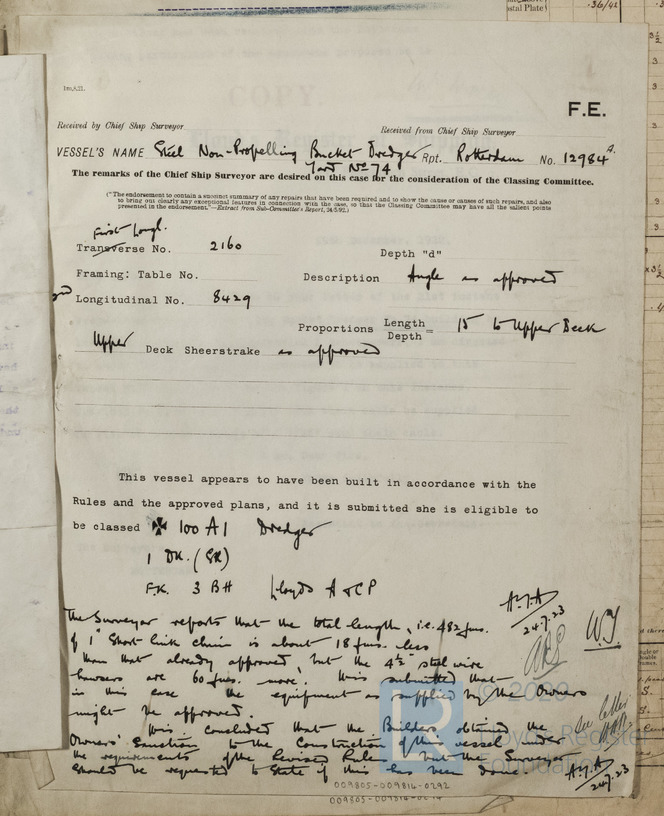 ostal Plate
.36/42
1m,6,21.
COPY.
F.E.
Received by Chief Ship Surveyor
Received from Chief Ship Surveyor
VESSEL'S NAME Steel Non-Propelling Bucket Dredger Rpt. Rotterdam No. 12984 A.
Yard No 74
The remarks of the Chief Ship Surveyor are desired on this case for the consideration of the Classing Committee.
("The endorsement to contain a succinct summary of any repairs that have been required and to show the cause or causes of such repairs, and also
to bring out clearly any exceptional features in connection with the case, so that the Classing Committee may have all the salient points
presented in the endorsement."—Extract from Sub-Committee's Report, 24/5/92.)
First Longl.
Transverse No. 2160
Depth "d"
Framing: Table No.
Description Angle as approved
2nd Longitudinal No. 8429
Proportions Length/Depth = 15 to Upper Deck
Upper Deck Sheerstrake as approved
This vessel appears to have been built in accordance with the
Rules and the approved plans, and it is submitted she is eligible to
be classed ✠ 100 A1 Dredger
1 DK. (Stl)
F.K. 3 BH Lloyds A & C P
The Surveyor reports that the total length, i.e. 482 fms.
of 1" Short link chain is about 18 fms. less
than that already approved, but the 4½" steel wire
hawsers are 60 fms. more. It is submitted that
in this case the equipment as supplied by the Owners
might be approved.
It is concluded that the Builders obtained the
Owners' Sanction to the Construction of this vessel under
the requirements of the Revised Rules but the Surveyor
should be requested to State if this has been done.
24.7.23
W.J.
See letter
24.7.23
© 2020
Lloyd's Register
Foundation
009805-009814-0292
009805-009814-0292